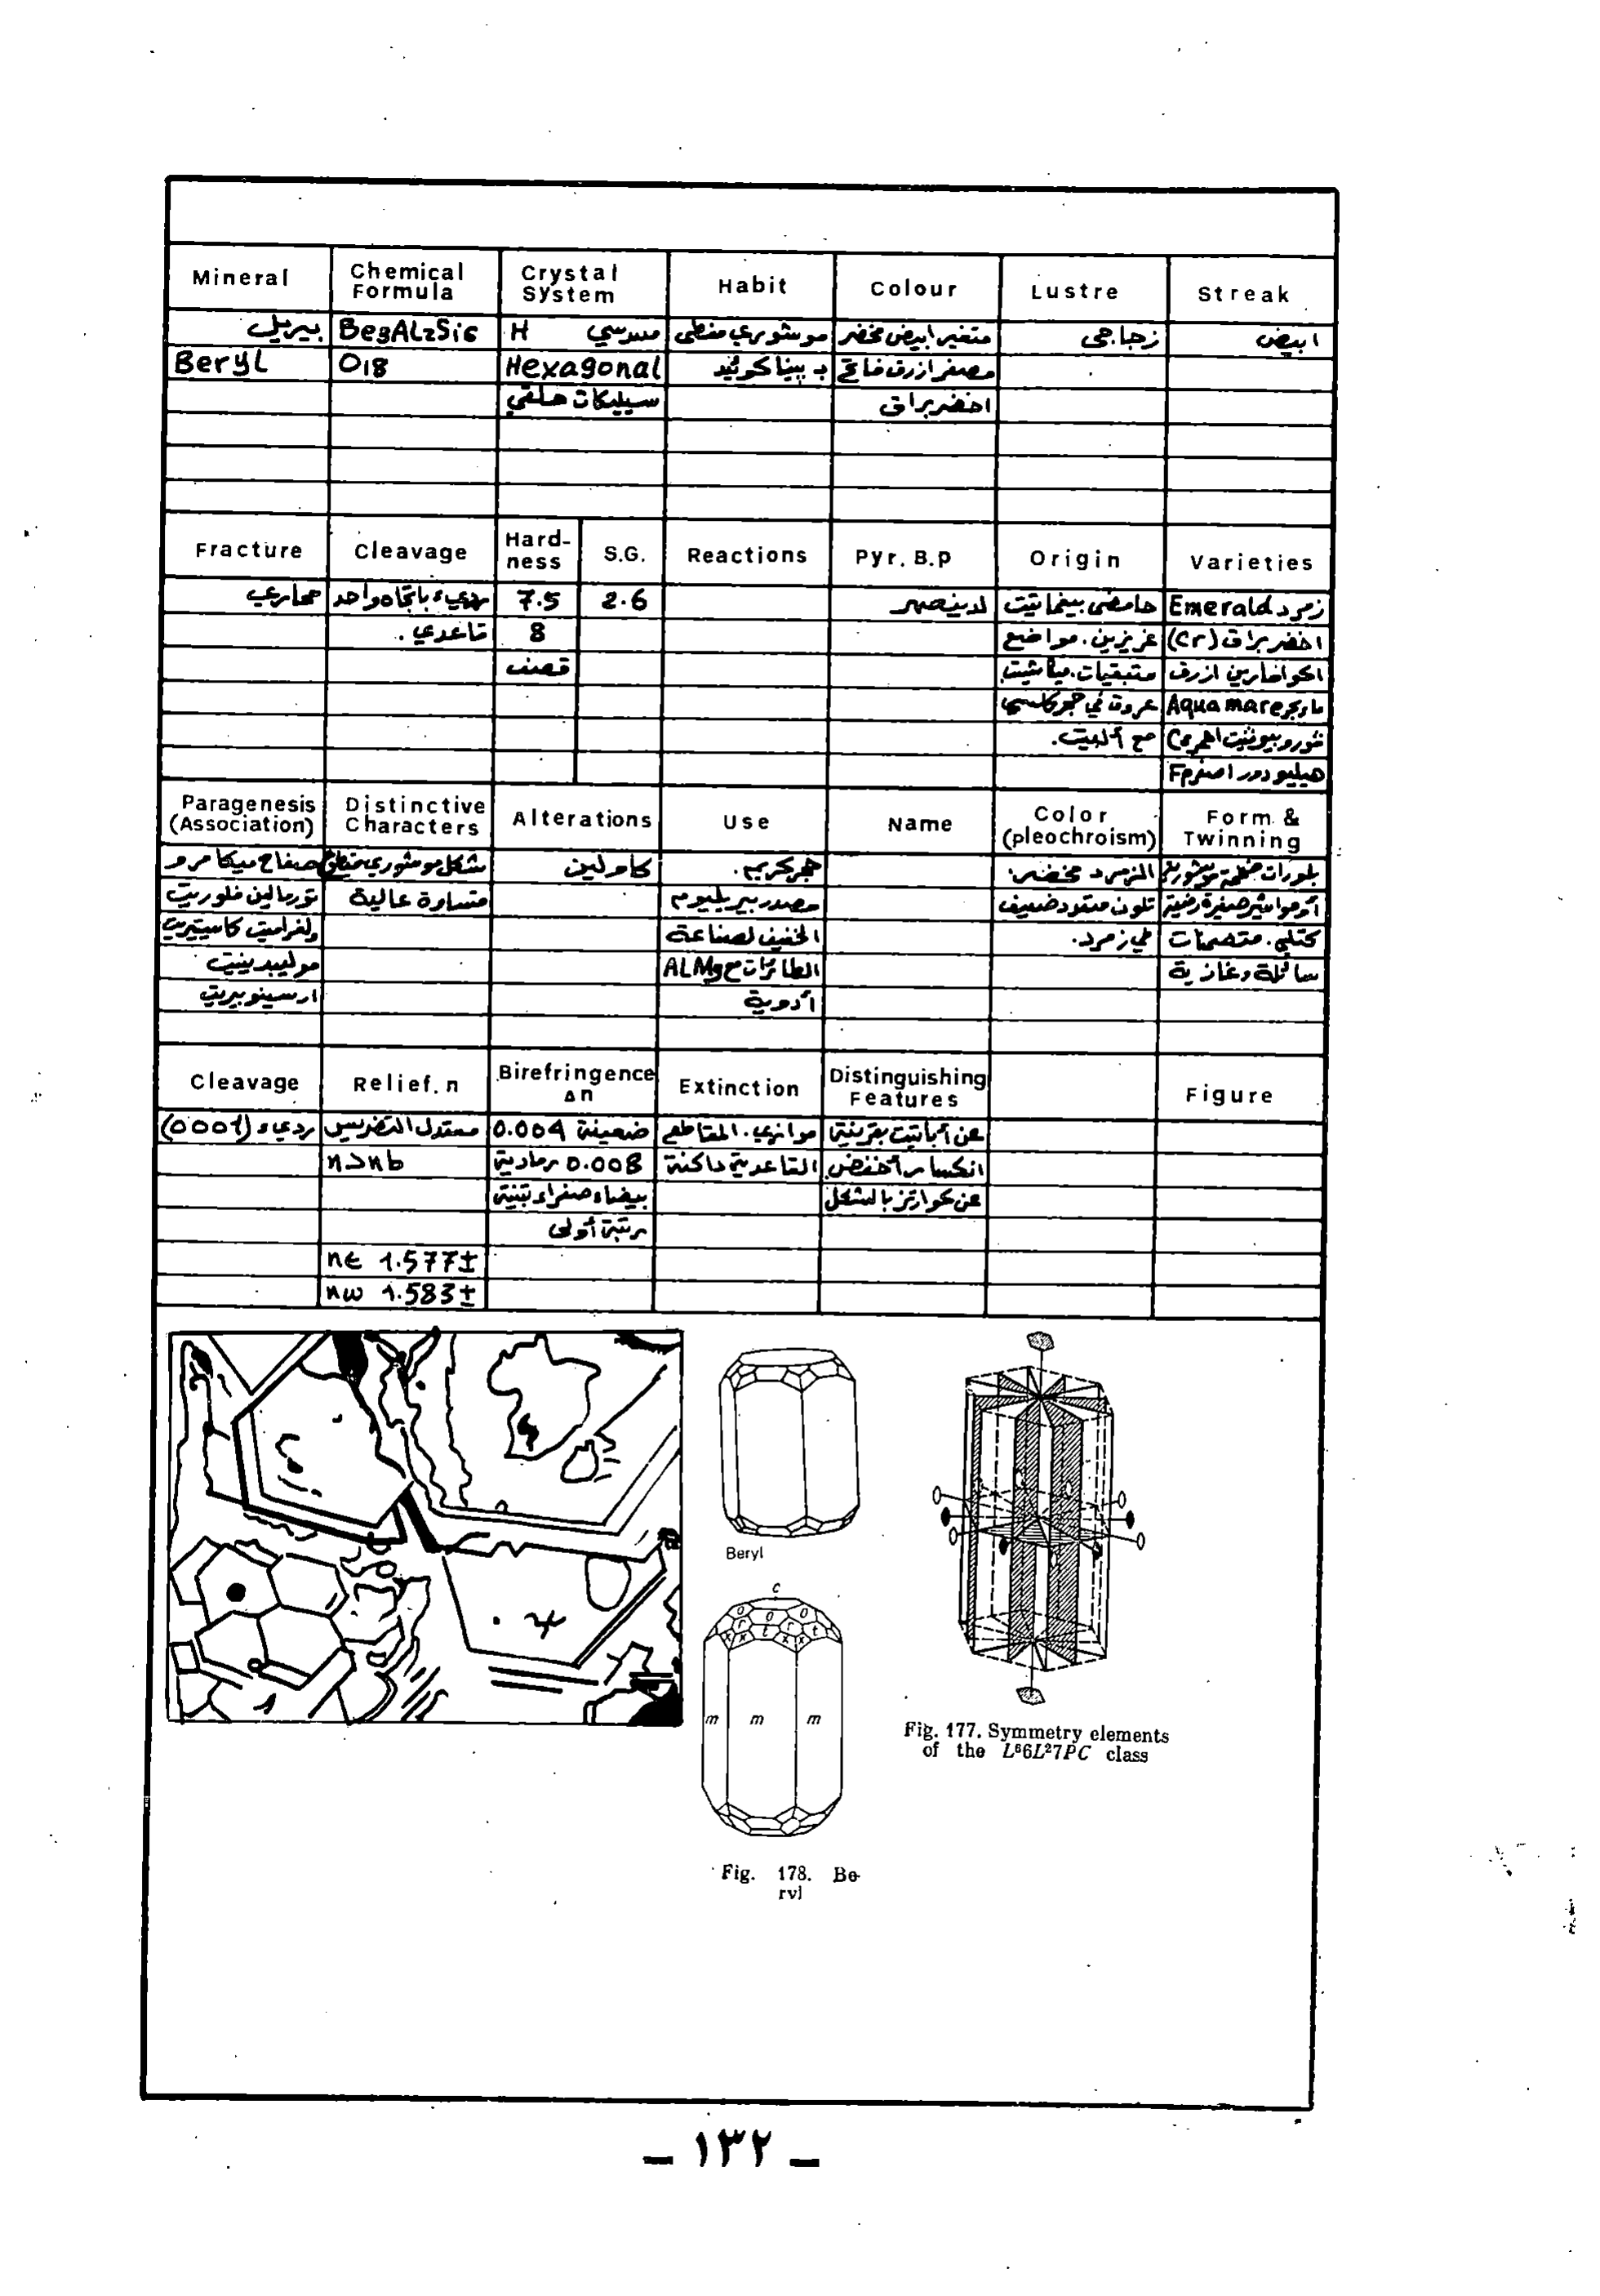 Mineral
Chemical Formula
Crystal System
Habit
Colour
Lustre
Streak
بيريل
BegALzSi6
H سدسي
موشوري منطى
متغير ابيض مخضر
زجاجي
ابيض
Beryl
O18
Hexagonal
بـ بيناكوئيد
مصفر ازرق فاتح
سيليكات حلقي
اخضر براق
Fracture
Cleavage
Hard-ness
S.G.
Reactions
Pyr. B.p
Origin
Varieties
محاري
رديء باتجاه واحد
7.5
2.6
لا ينصهر
حامضي بيغماتيت
زمرد Emerald
قاعدي.
8
غريزين. مواضع
اخضر براق (Cr)
قصف
اكوامارين ازرق
عروق في حجر كلسي
ماء بحر Aquamare
مع ألبيت.
هيليودور اصفر Fe
Paragenesis (Association)
Distinctive Characters
Alterations
Use
Name
Color (pleochroism)
Form & Twinning
صفاح ميكا مرو
شكل موشوري
كاولين
حجر كريم.
الزمرد مخضر.
تورمالين فلوريت
قساوة عالية
مصدر بيريليوم
ضعيف
ولفراميت كاسيتيريت
الخفيف لصناعة
في زمرد.
كتلي. متضمنات
موليبدينيت
الطائرات مع ALMg
سائلة وغازية
ارسينوبيريت
أدوية
Cleavage
Relief.n
Birefringence Δn
Extinction
Distinguishing Features
Figure
رديء (0001)
معتدل التضريس
ضعيفة 0.004
موازي. المقاطع
عن أباتيت بقرينة
n>nb
0.008 رمادية
القاعدية داكنة
انكسار أخفض
بيضاء صفراء تبنية
عن كوارتز بالشكل
رتبة أولى
nϵ 1.577±
nω 1.583±
Beryl
c
o o o
r r
x x t x x t
m m m
Fig. 177. Symmetry elements
of the L⁶6L²7PC class
Fig. 178. Be-
ryl
– ١٣٢ –